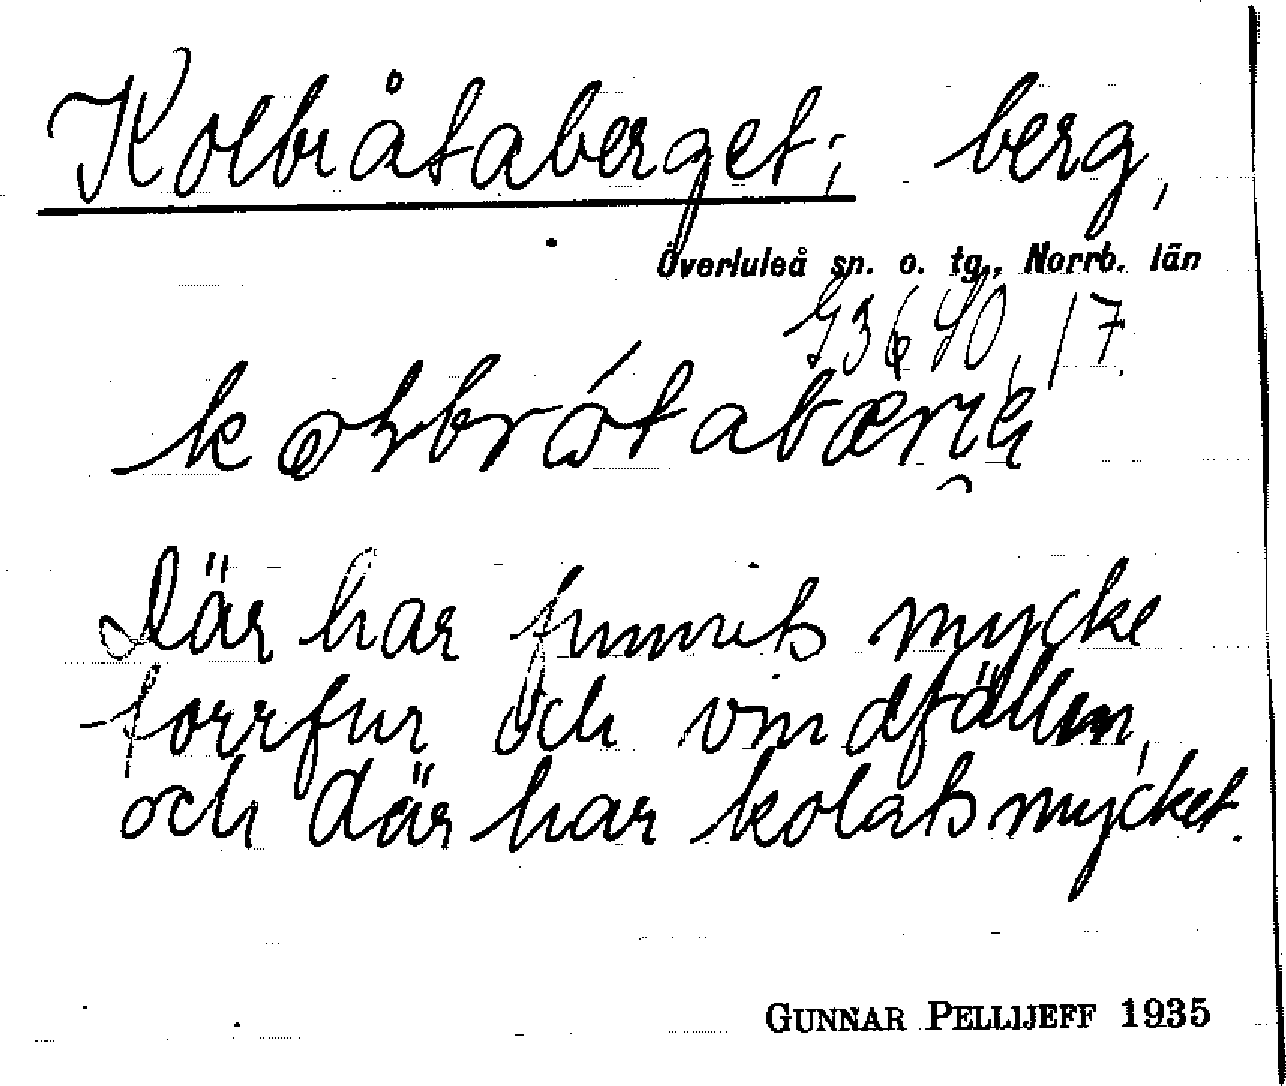 Kolbråtaberget; berg,
Överluleå sn. o. tg., Norrb. län
G3640, 17
Där har funnits mycke
torrfur och vindfällen,
och där har kolats mycket.
GUNNAR PELLIJEFF 1935